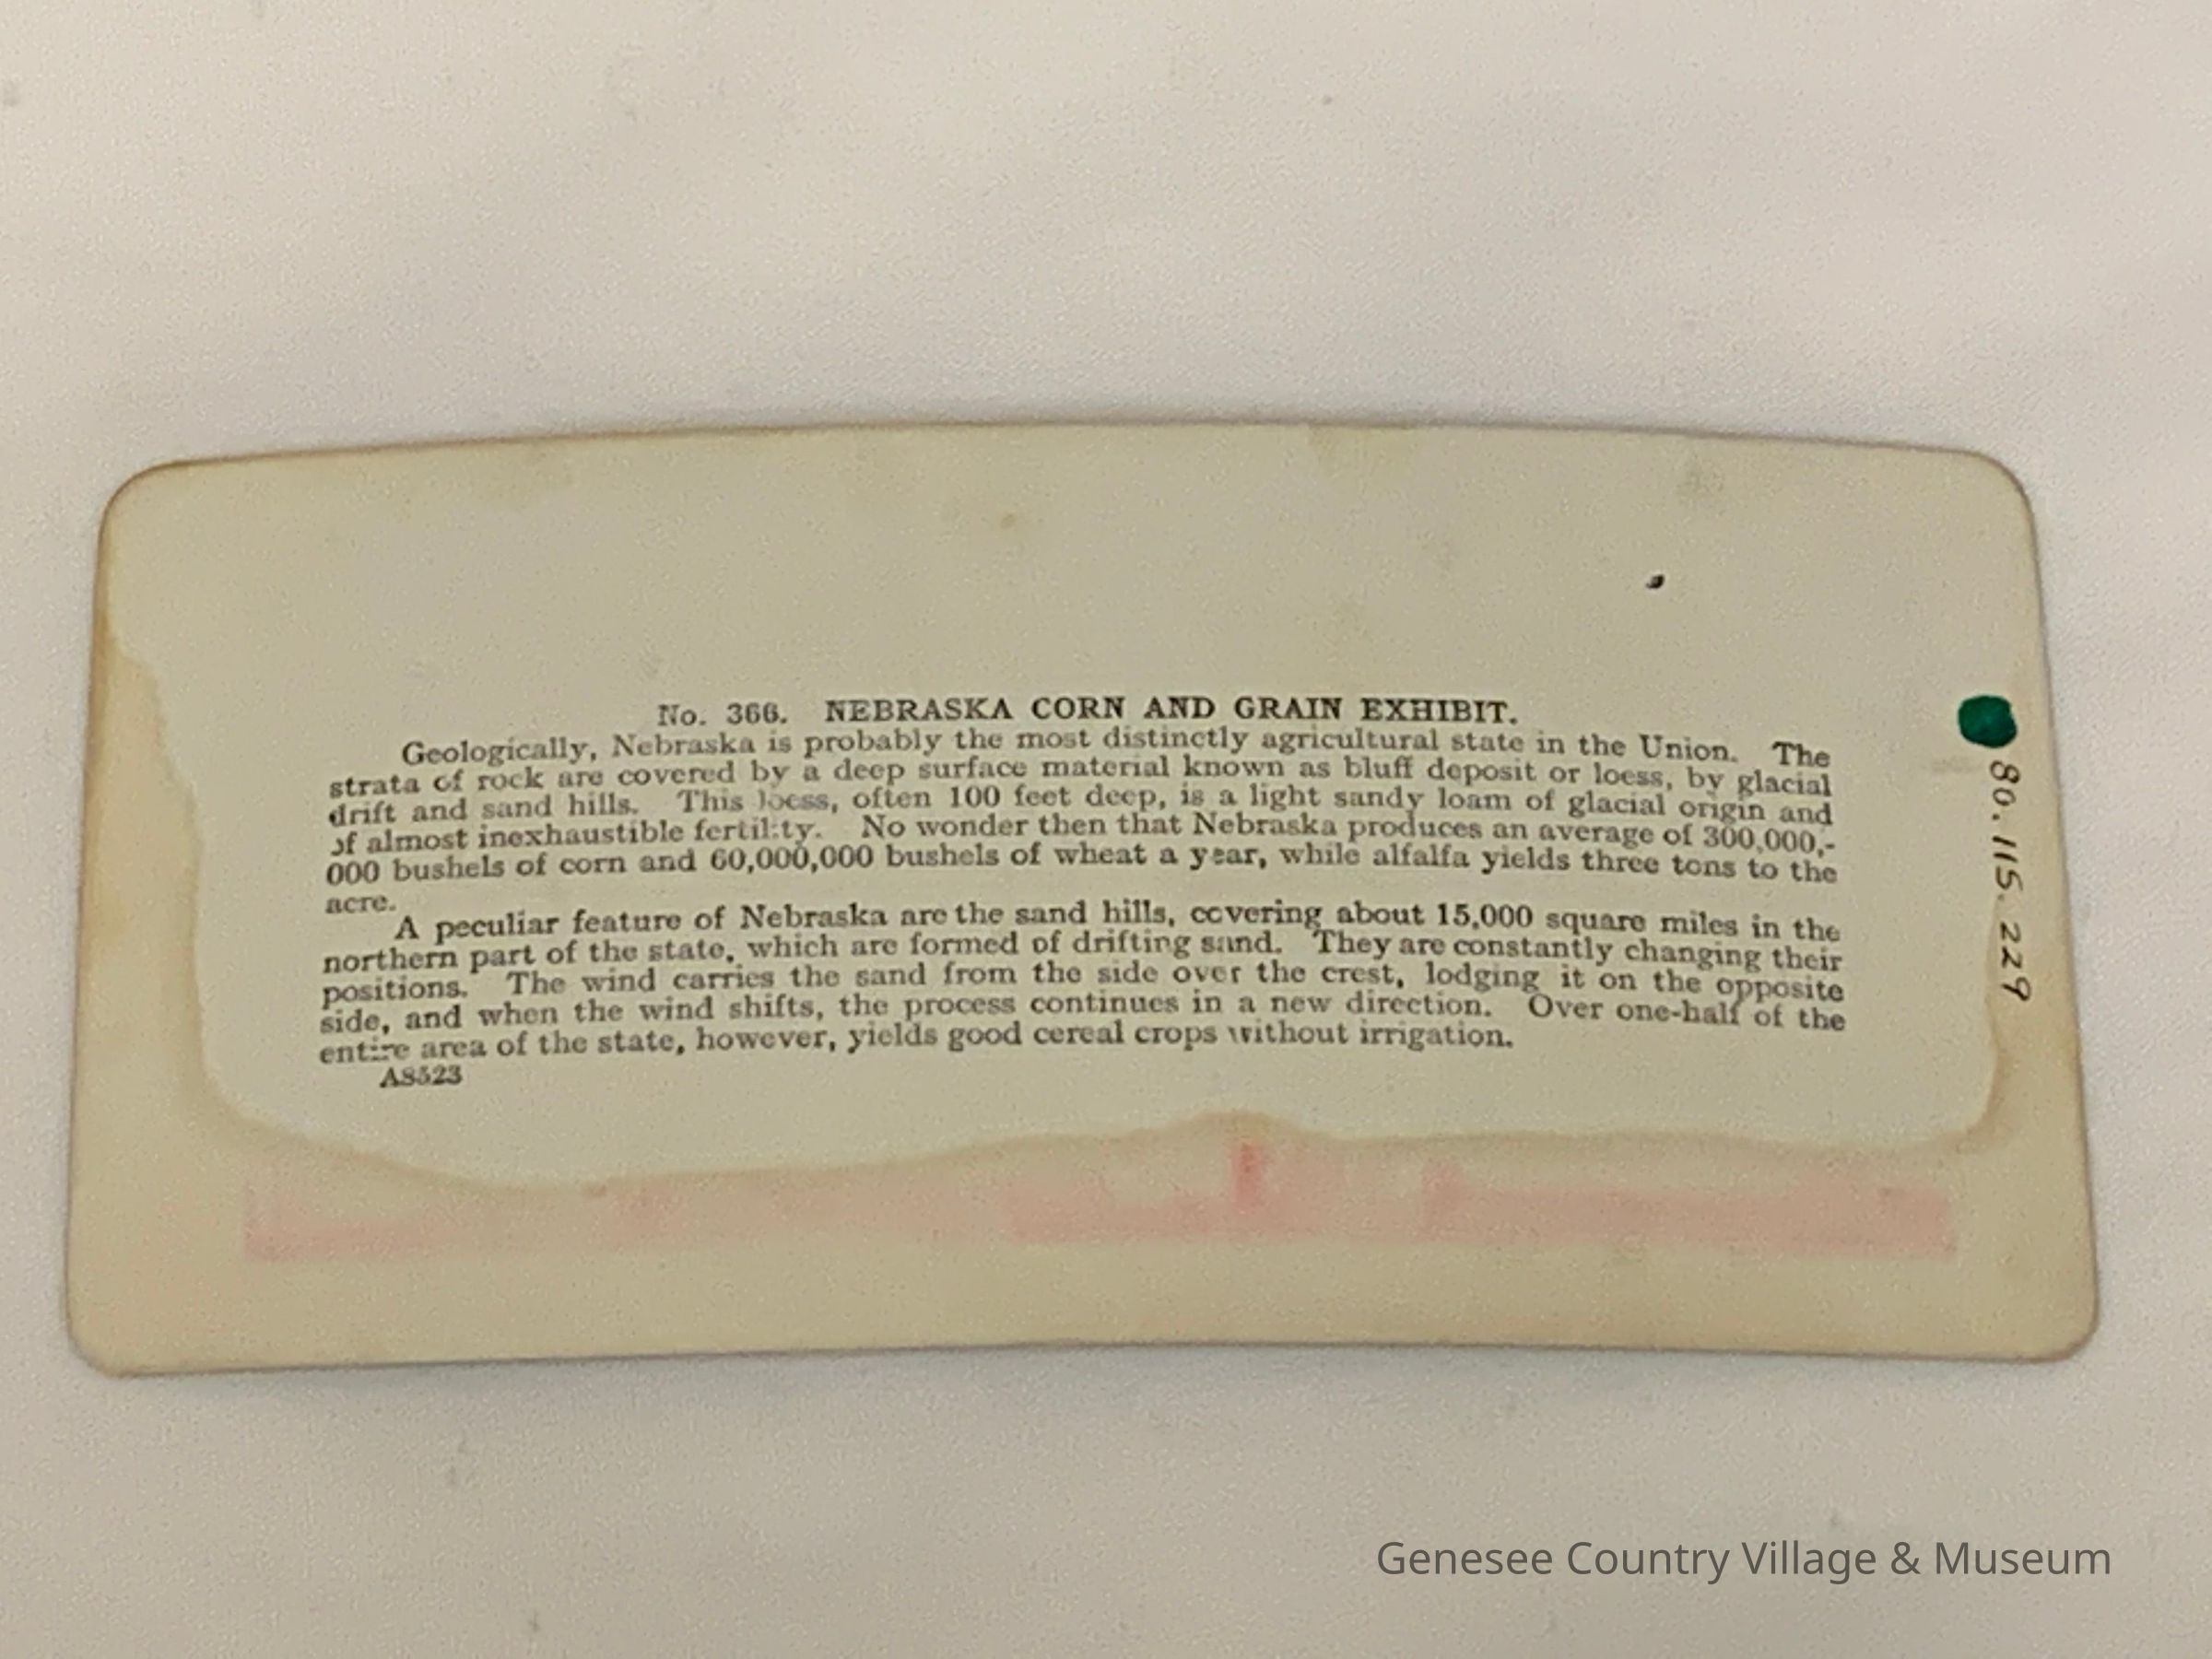 No. 366. NEBRASKA CORN AND GRAIN EXHIBIT.
Geologically, Nebraska is probably the most distinctly agricultural state in the Union. The
strata of rock are covered by a deep surface material known as bluff deposit or loess, by glacial
drift and sand hills. This loess, often 100 feet deep, is a light sandy loam of glacial origin and
of almost inexhaustible fertility. No wonder then that Nebraska produces an average of 300,000,-
000 bushels of corn and 60,000,000 bushels of wheat a year, while alfalfa yields three tons to the
acre.
A peculiar feature of Nebraska are the sand hills, covering about 15,000 square miles in the
northern part of the state, which are formed of drifting sand. They are constantly changing their
positions. The wind carries the sand from the side over the crest, lodging it on the opposite
side, and when the wind shifts, the process continues in a new direction. Over one-half of the
entire area of the state, however, yields good cereal crops without irrigation.
A8523
80.115.229
Genesee Country Village & Museum